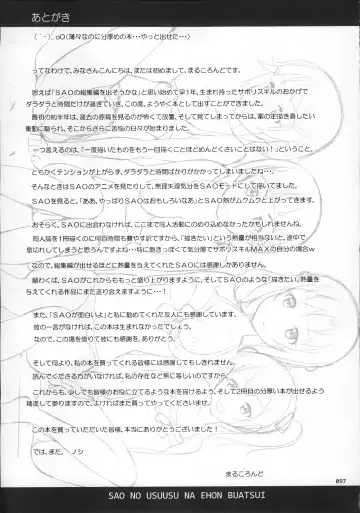 あとがき
(´-)｡oO(薄々なのに分厚めの本・・・やっと出せた・・・)
ってなわけで、みなさんこんにちは、または初めまして、まるころんどです。
思えば「SAOの総集編を出そうかな」と思い始めて早1年。生まれ持ったサボリスキルのおかげで
ダラダラと時間だけが過ぎていき、この度、ようやく本として出すことができました。
最初の約半年は、過去の原稿を見るのが怖くて放置、そして見てしまってからは、案の定描き直したい
衝動に駆られ、そこからさらに苦悩の日々が始まりました。
一つ言えるのは、「一度描いたものをもう一回描くことほどめんどくさいことはない！」ということ。
ともかくテンションが上がらず、ダラダラと時間ばかりがかかってしまいましたね・・・。
そんなときはSAOのアニメを見たりして、無理矢理気分をSAOモードにして描いてました。
SAOを見ると、「ああ、やっぱりSAOはおもしろいなあ」とSAO熱がムクムクと上がってきます。
おそらく、SAOに出会わなければ、ここまで同人活動にのめり込めなかったかもしれませんね。
同人誌を1冊描くのに何百時間も費やす訳ですから、「描きたい」という熱量が相当ないと、途中で
息切れしてしまうと思うんですよね・・・特に飽きっぽくて気分屋でサボリスキルMAXの自分の場合w
なので、総集編が出せるほどに熱量を与えてくれたSAOには感謝しかありません。
願わくば、SAOがこれからももっと盛り上がりますように、そしてSAOのような「描きたい」熱量を
与えてくれる作品にまた巡り会えますように・・・！
また、「SAOが面白いよ」と私に勧めてくれた友人にも感謝しています。
彼の一言がなければ、この本は生まれなかったでしょう。
なので、この場を借りて彼にも感謝を、ありがとうございます。
そして何より、私の本を買ってくれる皆様には感謝してもしきれません。
読んでくださる方がいなければ、私の存在など無に等しいのですから。
これからも、少しでも皆様のお役に立てるような本を描けるよう、そして2冊目の分厚い本が出せるよう
精進して参りますので、よければまた買ってやってくださいませ。
この本を買っていただいた皆様、本当にありがとうございました。
では、また、ノシ
まるころんど
097
SAO NO USUUSU NA EHON BUATSUI